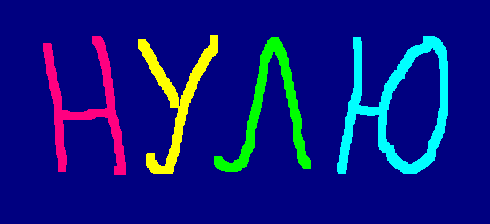 НУЛЮ